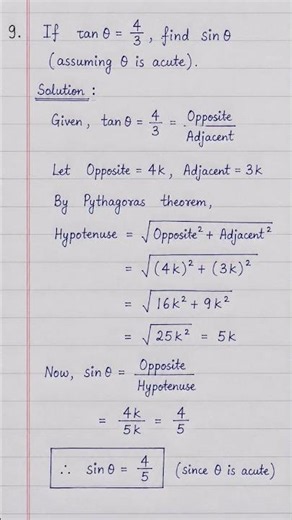 9. If tan θ = 4/3, find sin θ
(assuming θ is acute).
Solution :
Given, tan θ = 4/3 = Opposite/Adjacent
Let Opposite = 4k, Adjacent = 3k
By Pythagoras theorem,
Hypotenuse = √(Opposite² + Adjacent²)
= √((4k)² + (3k)²)
= √(16k² + 9k²)
= √(25k²) = 5k
Now, sin θ = Opposite/Hypotenuse
= 4k/5k = 4/5
∴ sin θ = 4/5 (since θ is acute)